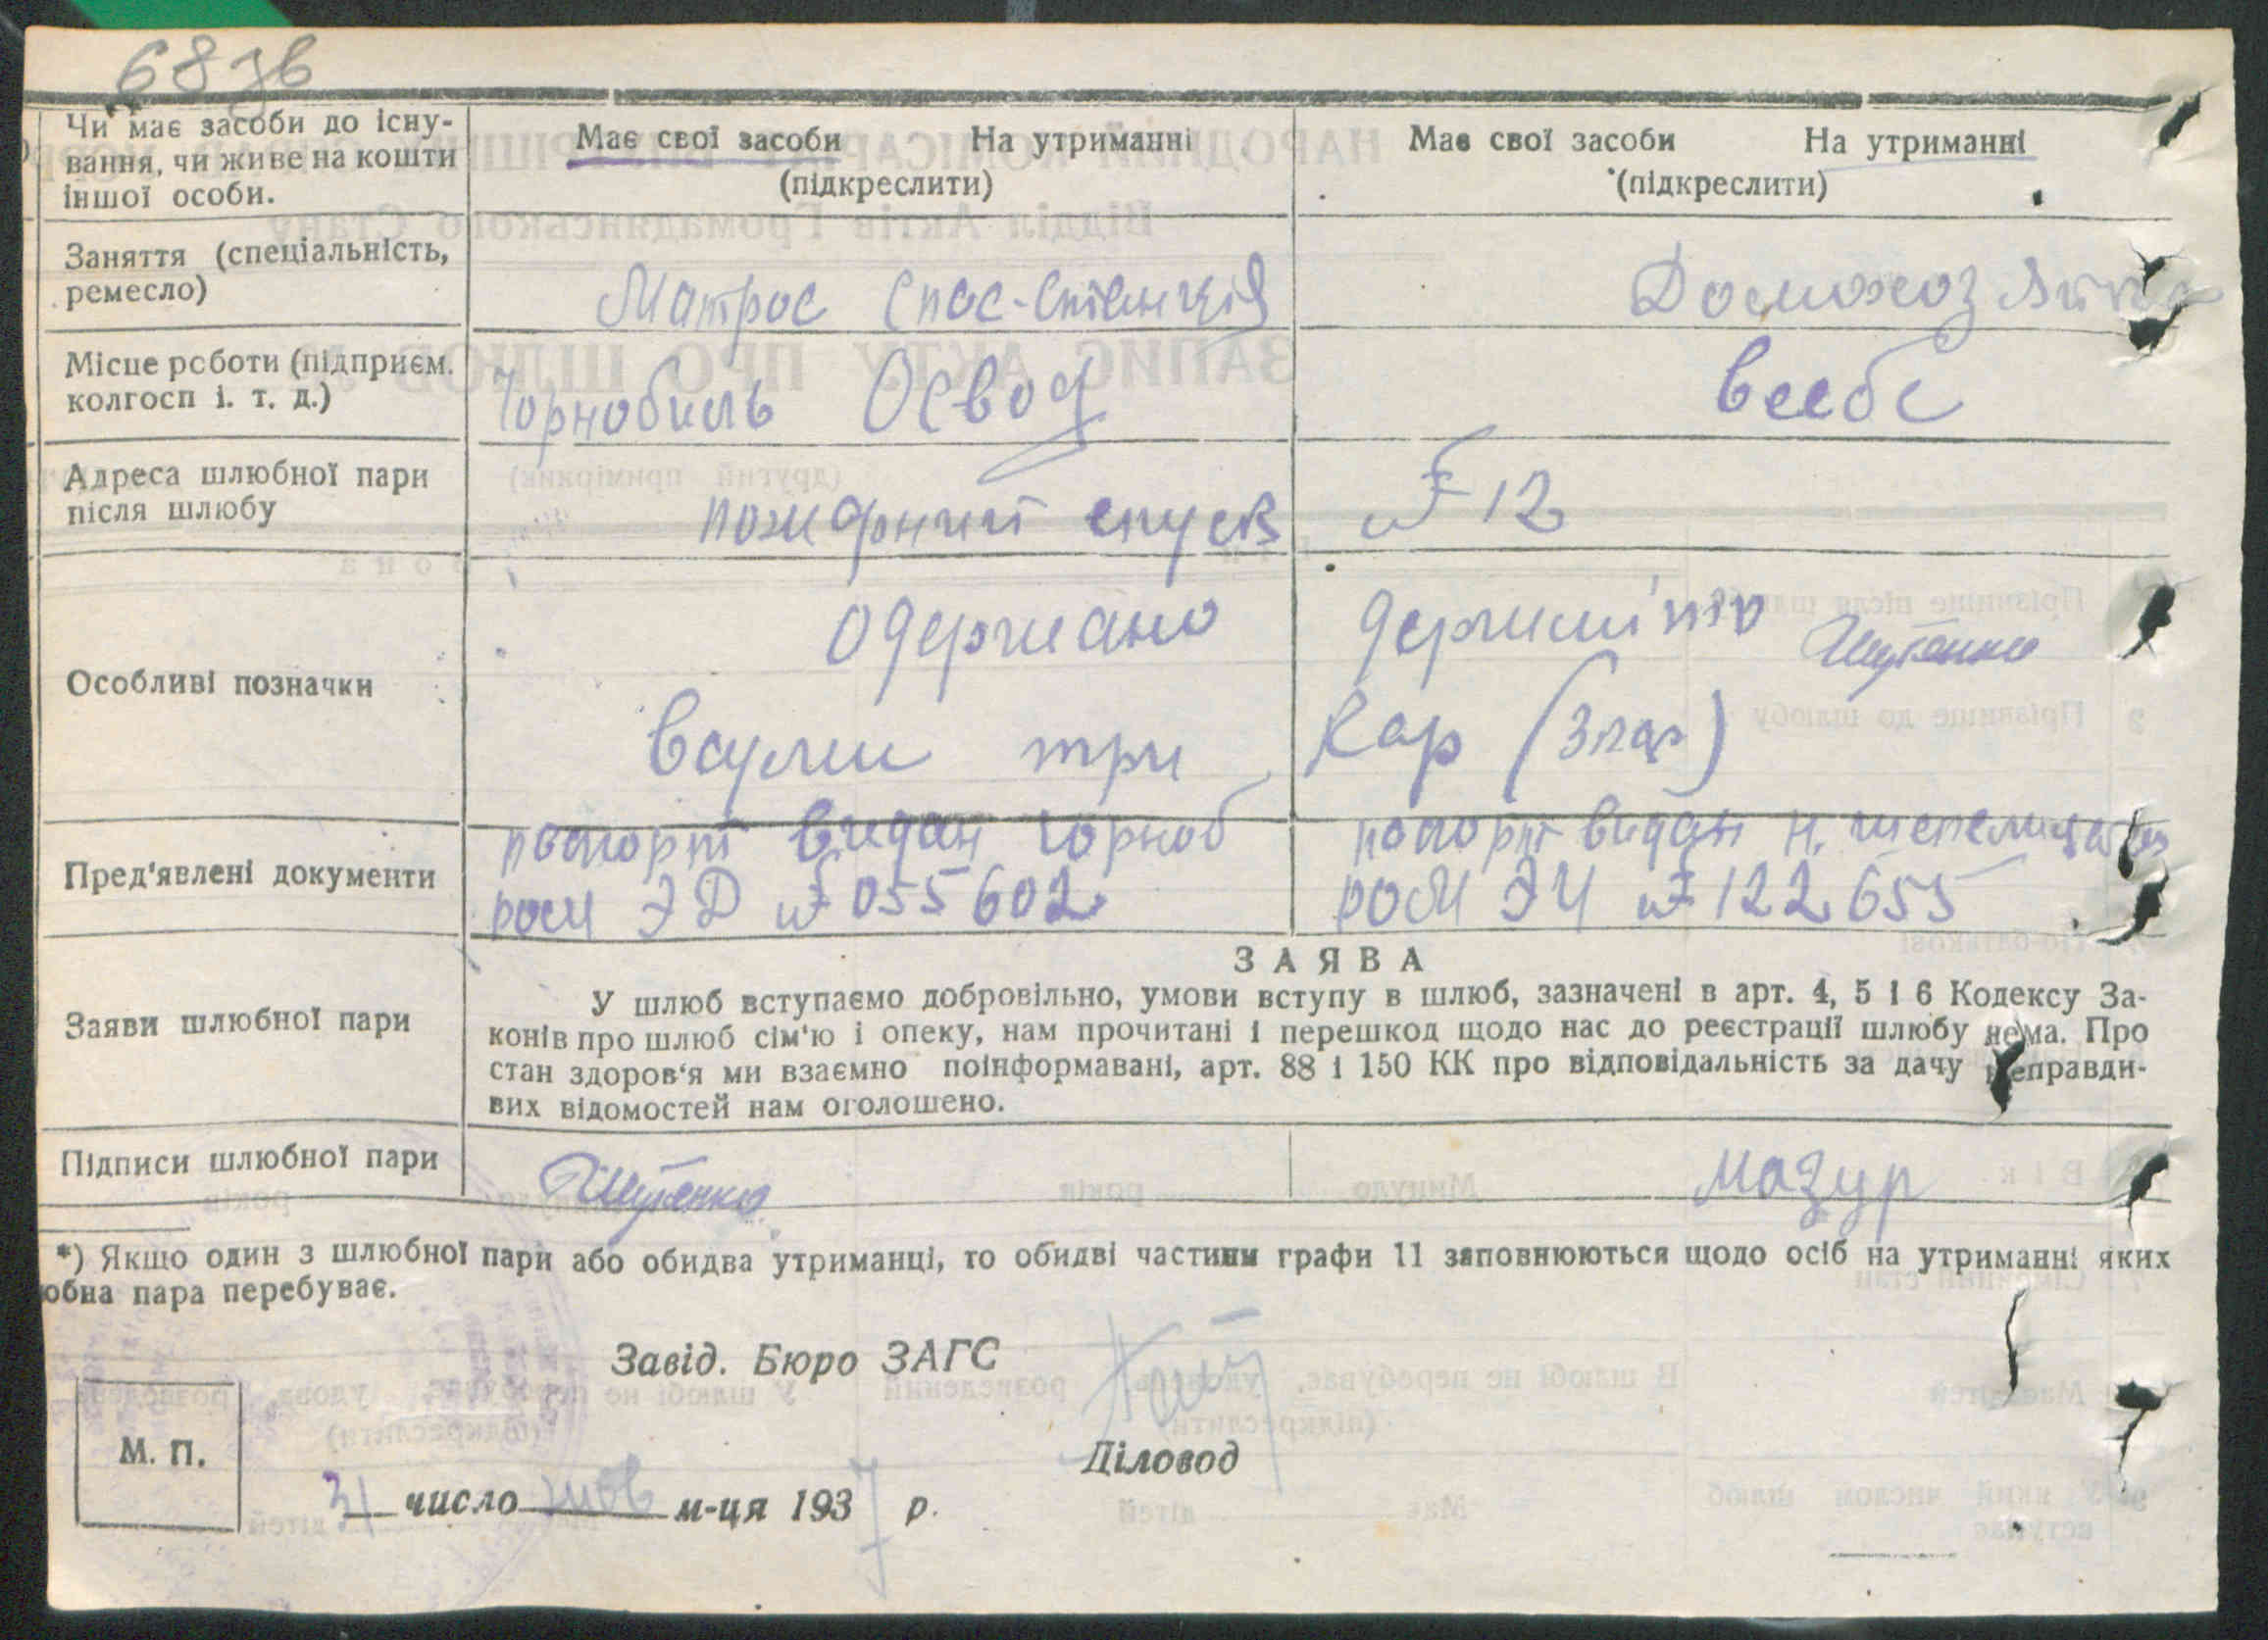 68 зв
Чи має засоби до існу-
вання, чи живе на кошти
іншої особи.
Має свої засоби На утриманні
(підкреслити)
Має свої засоби На утриманні
(підкреслити)
Заняття (спеціальність,
ремесло)
Матрос Спос-Стенція
Домохозяйка
Місце роботи (підприєм.
колгосп і. т. д.)
Чорнобиль Освод
всебе
Адреса шлюбної пари
після шлюбу
пожарний спуск № 12
Особливі позначки
Одержано держмито Шутенко
три кар (3 кар)
Пред'явлені документи
паспорт видан Чорноб
РОМ ЭД № 055602
паспорт видан Н. Шепелицкая
РОМ ЭЧ № 122655
Заяви шлюбної пари
ЗАЯВА
У шлюб вступаємо добровільно, умови вступу в шлюб, зазначені в арт. 4, 5 і 6 Кодексу За-
конів про шлюб сім'ю і опеку, нам прочитані і перешкод щодо нас до реєстрації шлюбу нема. Про
стан здоров'я ми взаємно поінформавані, арт. 88 і 150 КК про відповідальність за дачу неправди-
вих відомостей нам оголошено.
Підписи шлюбної пари
Шутенко
Мазур
*) Якщо один з шлюбної пари або обидва утриманці, то обидві частини графи 11 заповнюються щодо осіб на утриманні яких
обна пара перебуває.
Завід. Бюро ЗАГС
Діловод
М. П.
31 число жов м-ця 1937 р.